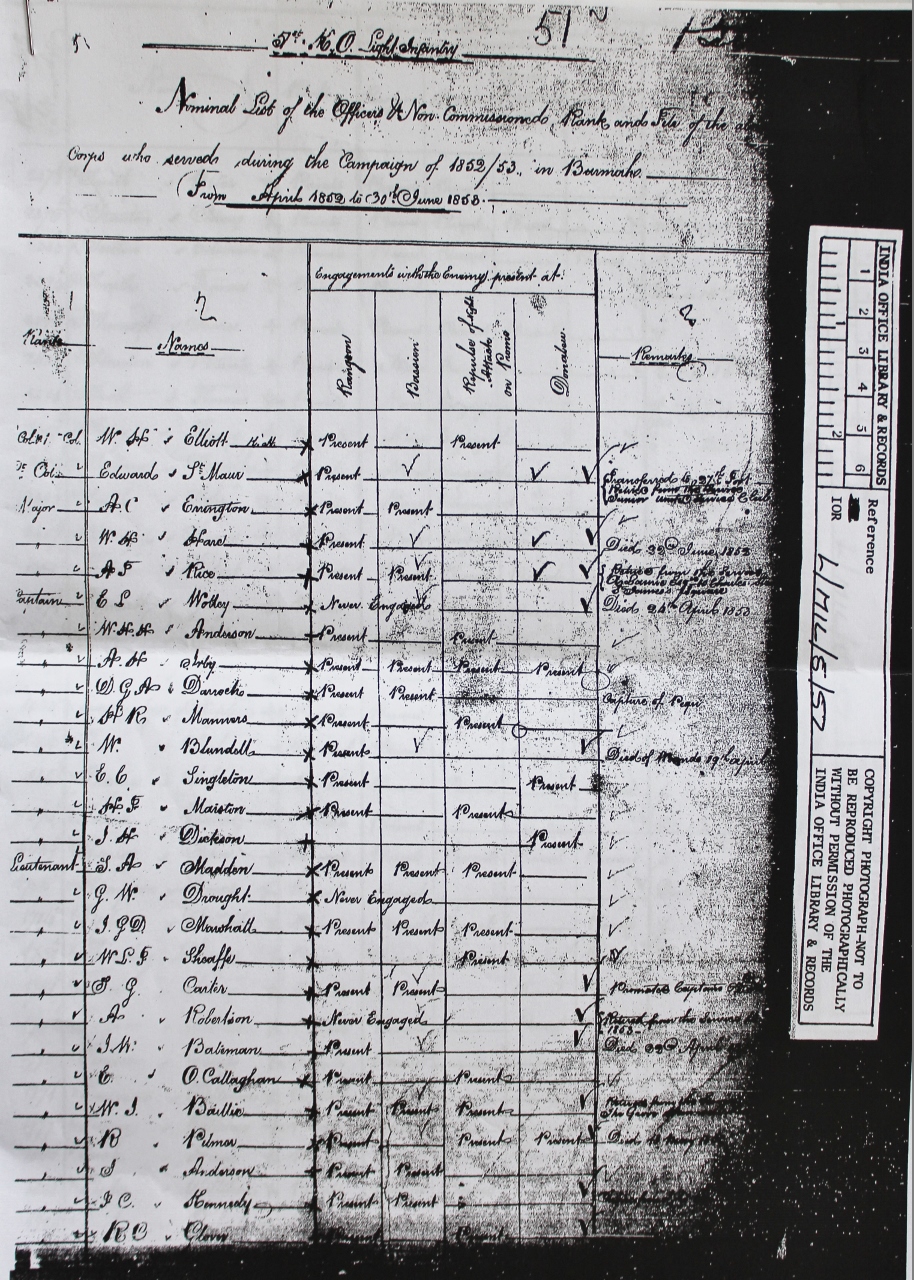 51
51st K.O. Light Infantry
Nominal List of the Officers & Non-Commissioned, Rank and File of the
Corps who served during the Campaign of 1852/53. in Burmah.
(From April 1852 to 30th June 1853.
Rank
Names
Engagements with the Enemy present at:
Rangoon
Bassein
Repulse of night Attack on Prome
Donabew
Remarks
W. H. Elliott Present Present
Edward St Maur Present Transferred to
Major A.C. Errington Present Present
" W.H. Hare Present Died 22nd June 1852
" A.T. Rice Present Present
Captain E L Wolley Never Engaged Died 24th April 1853
" W.H.H. Anderson Present Present
" A.H. Irby Present Present Present Present
" D.G.A. Darroch Present Present Capture of Pegu
" H R Manners Present Present
" W. Blundell Present Died of Wounds 19th April
" E. C. Singleton Present Present
" H F Marston Present Present
" J. H Dickson Present
Lieutenant S. A Madden Present Present Present
" G. W. Drought Never Engaged
" J.G.D. Marshall Present Present Present
" Present
" S. G. Carter Present Present Promoted Captain
" A Robertson Never Engaged Retired from the Service
1853
" Bateman Present Died 22nd April
" E O.Callaghan Present Present
" W. J. Baillie Present Present Present
" R Pilmer Present Present Present Died
" J Anderson Present Present
" J C. Kennedy Present Present
" R C Glover Present
INDIA OFFICE LIBRARY & RECORDS
1 2 3 4 5 6
1 2
Reference
IOR L/MIL/5/57
COPYRIGHT PHOTOGRAPH-NOT TO
BE REPRODUCED PHOTOGRAPHICALLY
WITHOUT PERMISSION OF THE
INDIA OFFICE LIBRARY & RECORDS